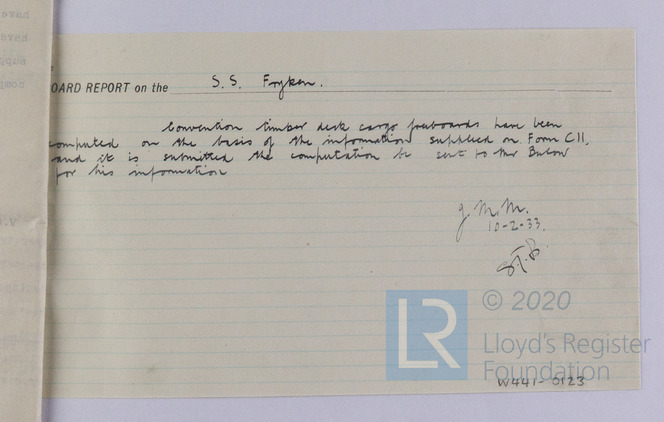 OARD REPORT on the S. S. Fryken.
Convention timber deck cargo freeboards have been
computed on the basis of the information supplied on Form C11,
and it is submitted the computation be sent to Mr Bulow
for his information
J. M. M.
10-2-33.
© 2020
LR
Lloyd's Register
Foundation
W441-0123